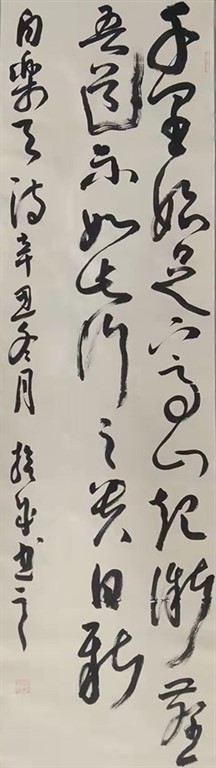 千里始足下高山起微塵
吾道亦如此行之貴日新
白樂天詩辛丑冬月 書之